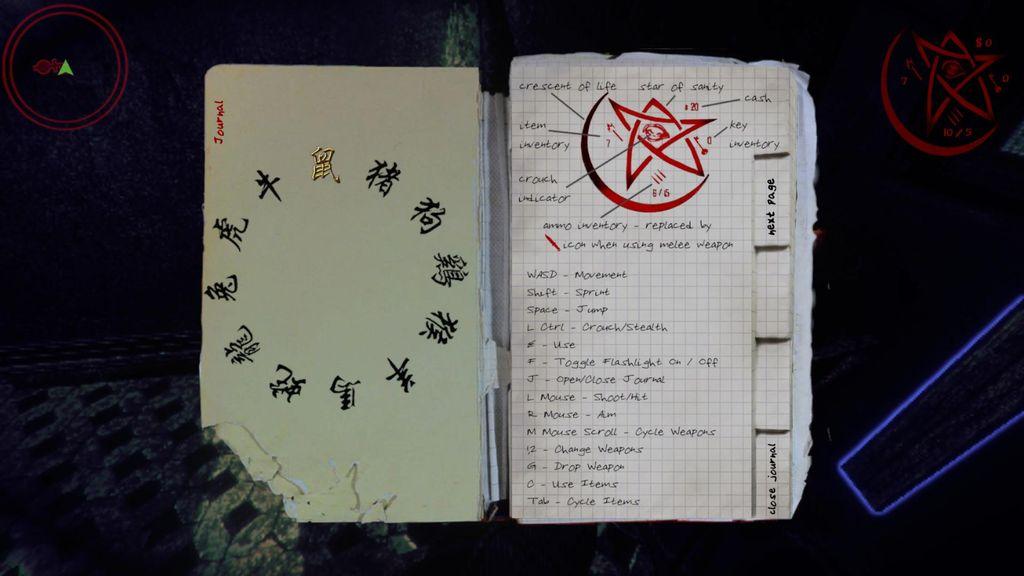 Journal
鼠
猪
狗
鷄
猴
羊
馬
蛇
龍
兔
虎
牛
crescent of life
star of sanity
cash
item
inventory
key
inventory
crouch
indicator
$20
7
0
6/15
ammo inventory - replaced by
icon when using melee weapon
WASD - Movement
Shift - Sprint
Space - Jump
L Ctrl - Crouch/Stealth
E - Use
F - Toggle Flashlight On / Off
J - Open/Close Journal
L Mouse - Shoot/Hit
R Mouse - Aim
M Mouse Scroll - Cycle Weapons
12 - Change Weapons
G - Drop Weapon
C - Use Items
Tab - Cycle Items
next page
close journal
10/5